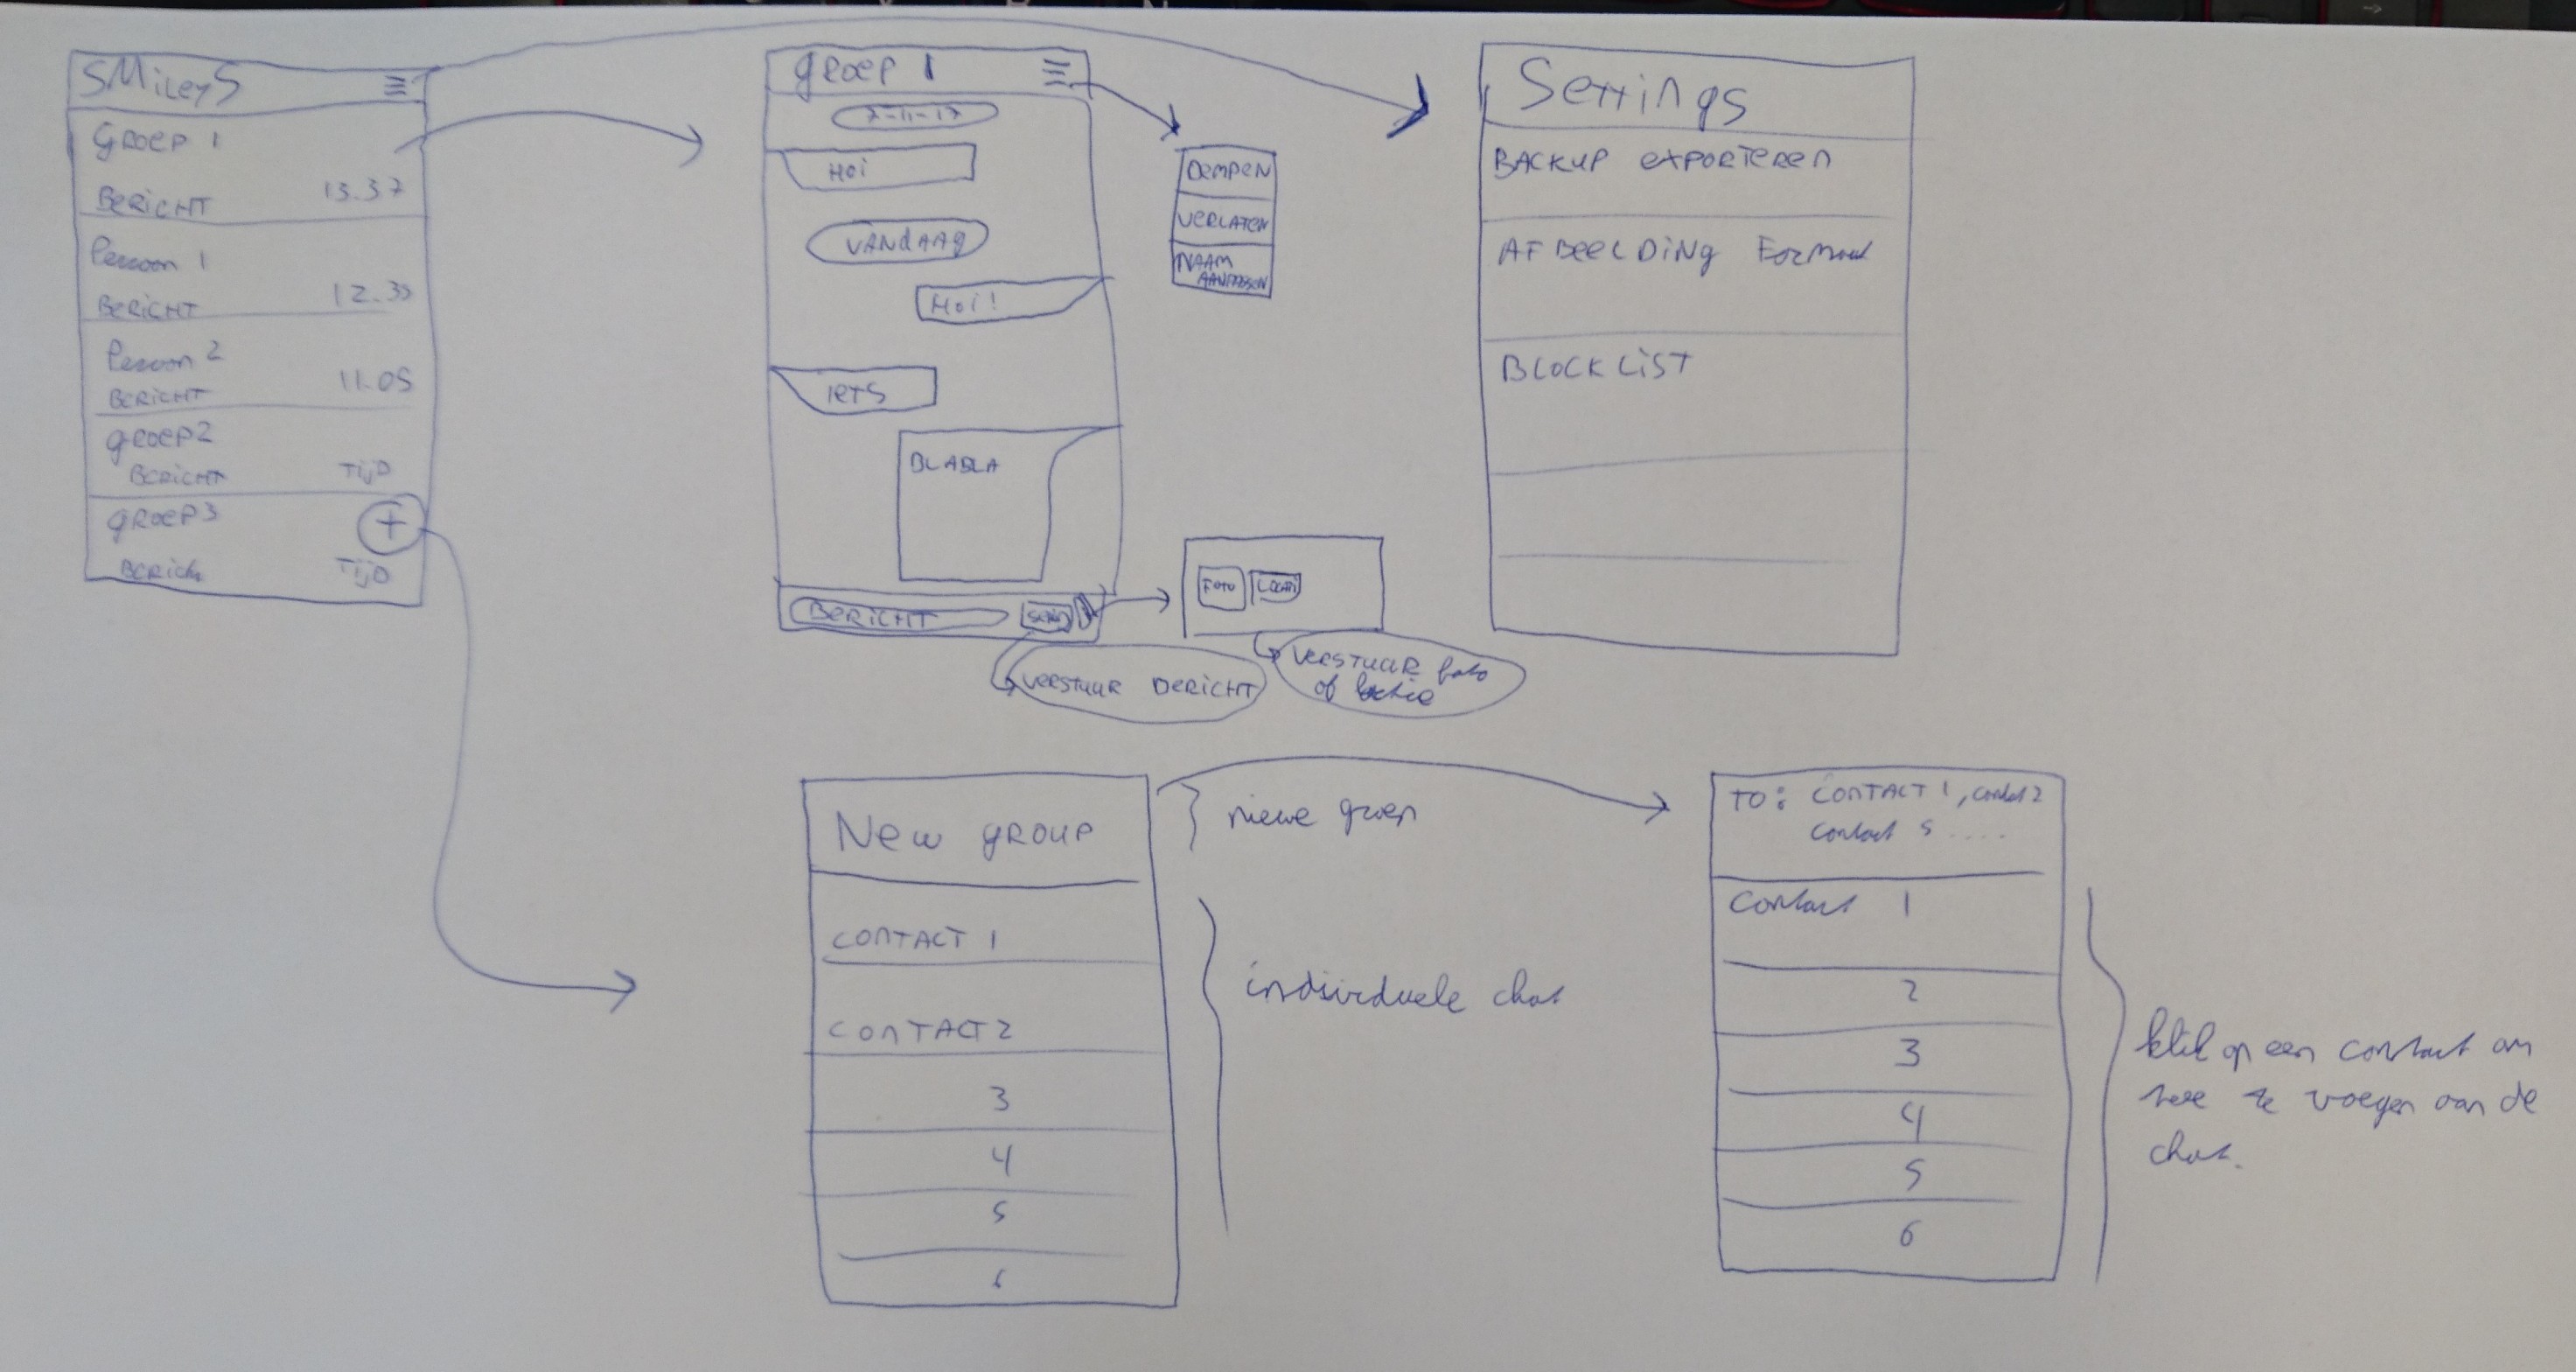 SMileyS
GROEP 1
BERICHT 13.37
Persoon 1
BERICHT
Persoon 2
BERICHT 11.05
GROEP2
BERICHT TIJD
GROEP3
+
BERICH TIJD
GROEP 1
7-11-17
HOI
VANDAAG
HOI!
IETS
BLABLA
BERICHT
VERSTUUR BERICHT
DEMPEN
VERLATEN
NAAM
AANPASSEN
FOTO
VERSTUUR foto
of locatie
Settings
BACKUP EXPORTEREN
AFBEELDING Formaat
BLOCKLIST
New GROUP
CONTACT 1
CONTACT 2
3
4
5
6
nieuwe groep
individuele chat
TO: CONTACT 1, contact 2
contact 5 ....
Contact 1
2
3
4
5
6
klik op een contact om
toe te voegen aan de
chat.